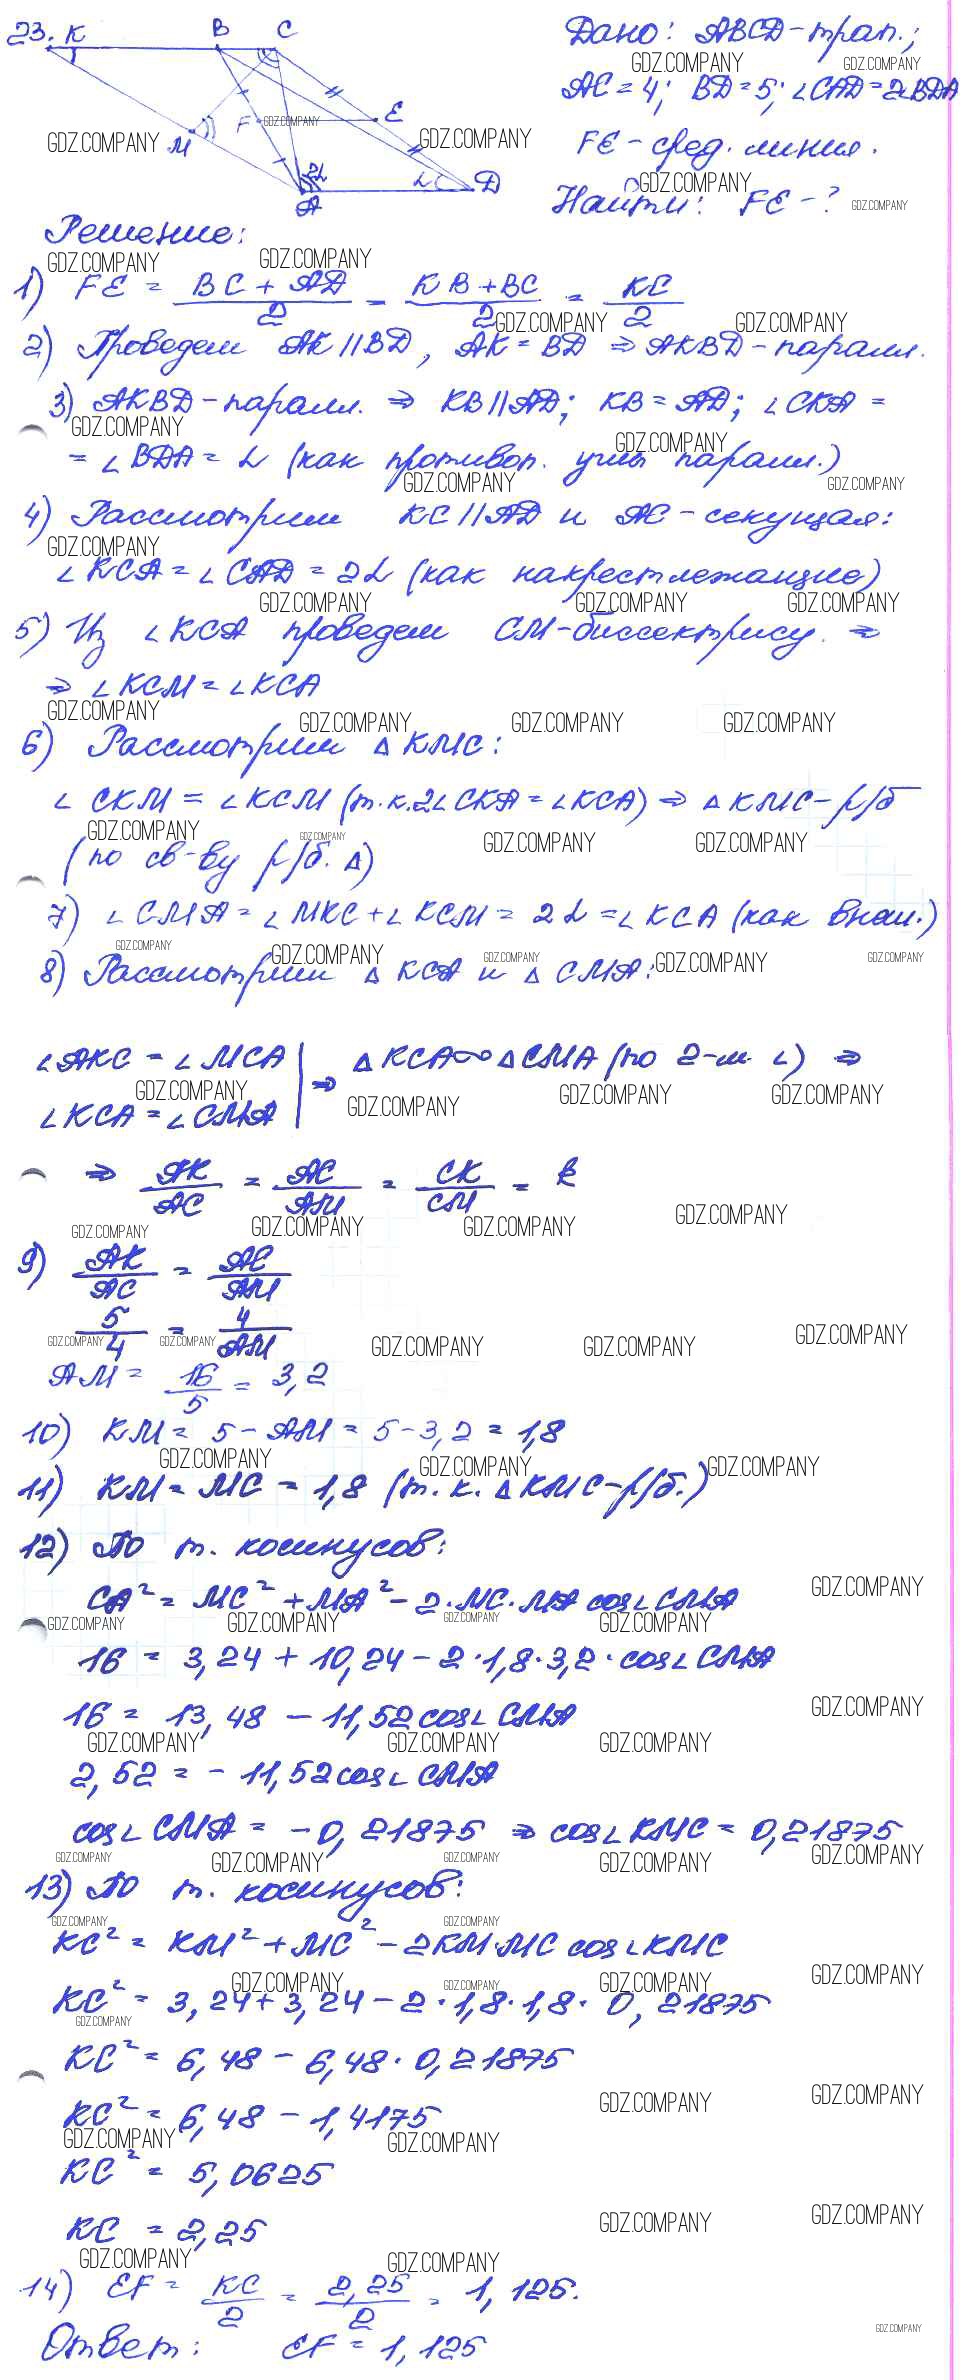 23. K B C
F E
M
2α α
A D
Дано: ABCD-трап.;
AC = 4; BD = 5; ∠CAD = 2∠BDA
FE - сред. линия.
Найти: FE - ?
Решение:
1) FE = (BC + AD)/2 = (KB + BC)/2 = KC/2
2) Проведем AK || BD, AK = BD ⇒ AKBD - паралл.
3) AKBD - паралл. ⇒ KB || AD; KB = AD; ∠CKA =
= ∠BDA = α (как противоп. углы паралл.)
4) Рассмотрим KC || AD и AC - секущая:
∠KCA = ∠CAD = 2α (как накрест лежащие)
5) Из ∠KCA проведем CM-биссектрису. ⇒
⇒ ∠KCM = ∠KCA
6) Рассмотрим △KMC:
∠CKM = ∠KCM (т.к. 2∠CKA = ∠KCA) ⇒ △KMC - р/б
(по св-ву р/б. △)
7) ∠CMA = ∠MKC + ∠KCM = 2α = ∠KCA (как внеш.)
8) Рассмотрим △KCA и △CMA:
∠AKC = ∠MCA | ⇒ △KCA ∾ △CMA (по 2-м ∠) ⇒
∠KCA = ∠CMA
⇒ AK/AC = AC/AM = CK/CM = k
9) AK/AC = AC/AM
5/4 = 4/AM
AM = 16/5 = 3,2
10) KM = 5 - AM = 5 - 3,2 = 1,8
11) KM = MC = 1,8 (т.к. △KMC-р/б.)
12) По т. косинусов:
CA² = MC² + MA² - 2·MC·MA cos∠CMA
16 = 3,24 + 10,24 - 2·1,8·3,2·cos∠CMA
16 = 13,48 - 11,52 cos∠CMA
2,52 = - 11,52 cos∠CMA
cos∠CMA = -0,21875 ⇒ cos∠KMC = 0,21875
13) По т. косинусов:
KC² = KM² + MC² - 2KM·MC cos∠KMC
KC² = 3,24 + 3,24 - 2·1,8·1,8·0,21875
KC² = 6,48 - 6,48·0,21875
KC² = 6,48 - 1,4175
KC² = 5,0625
KC = 2,25
14) EF = KC/2 = 2,25/2 = 1,125.
Ответ: EF = 1,125
GDZ.COMPANY